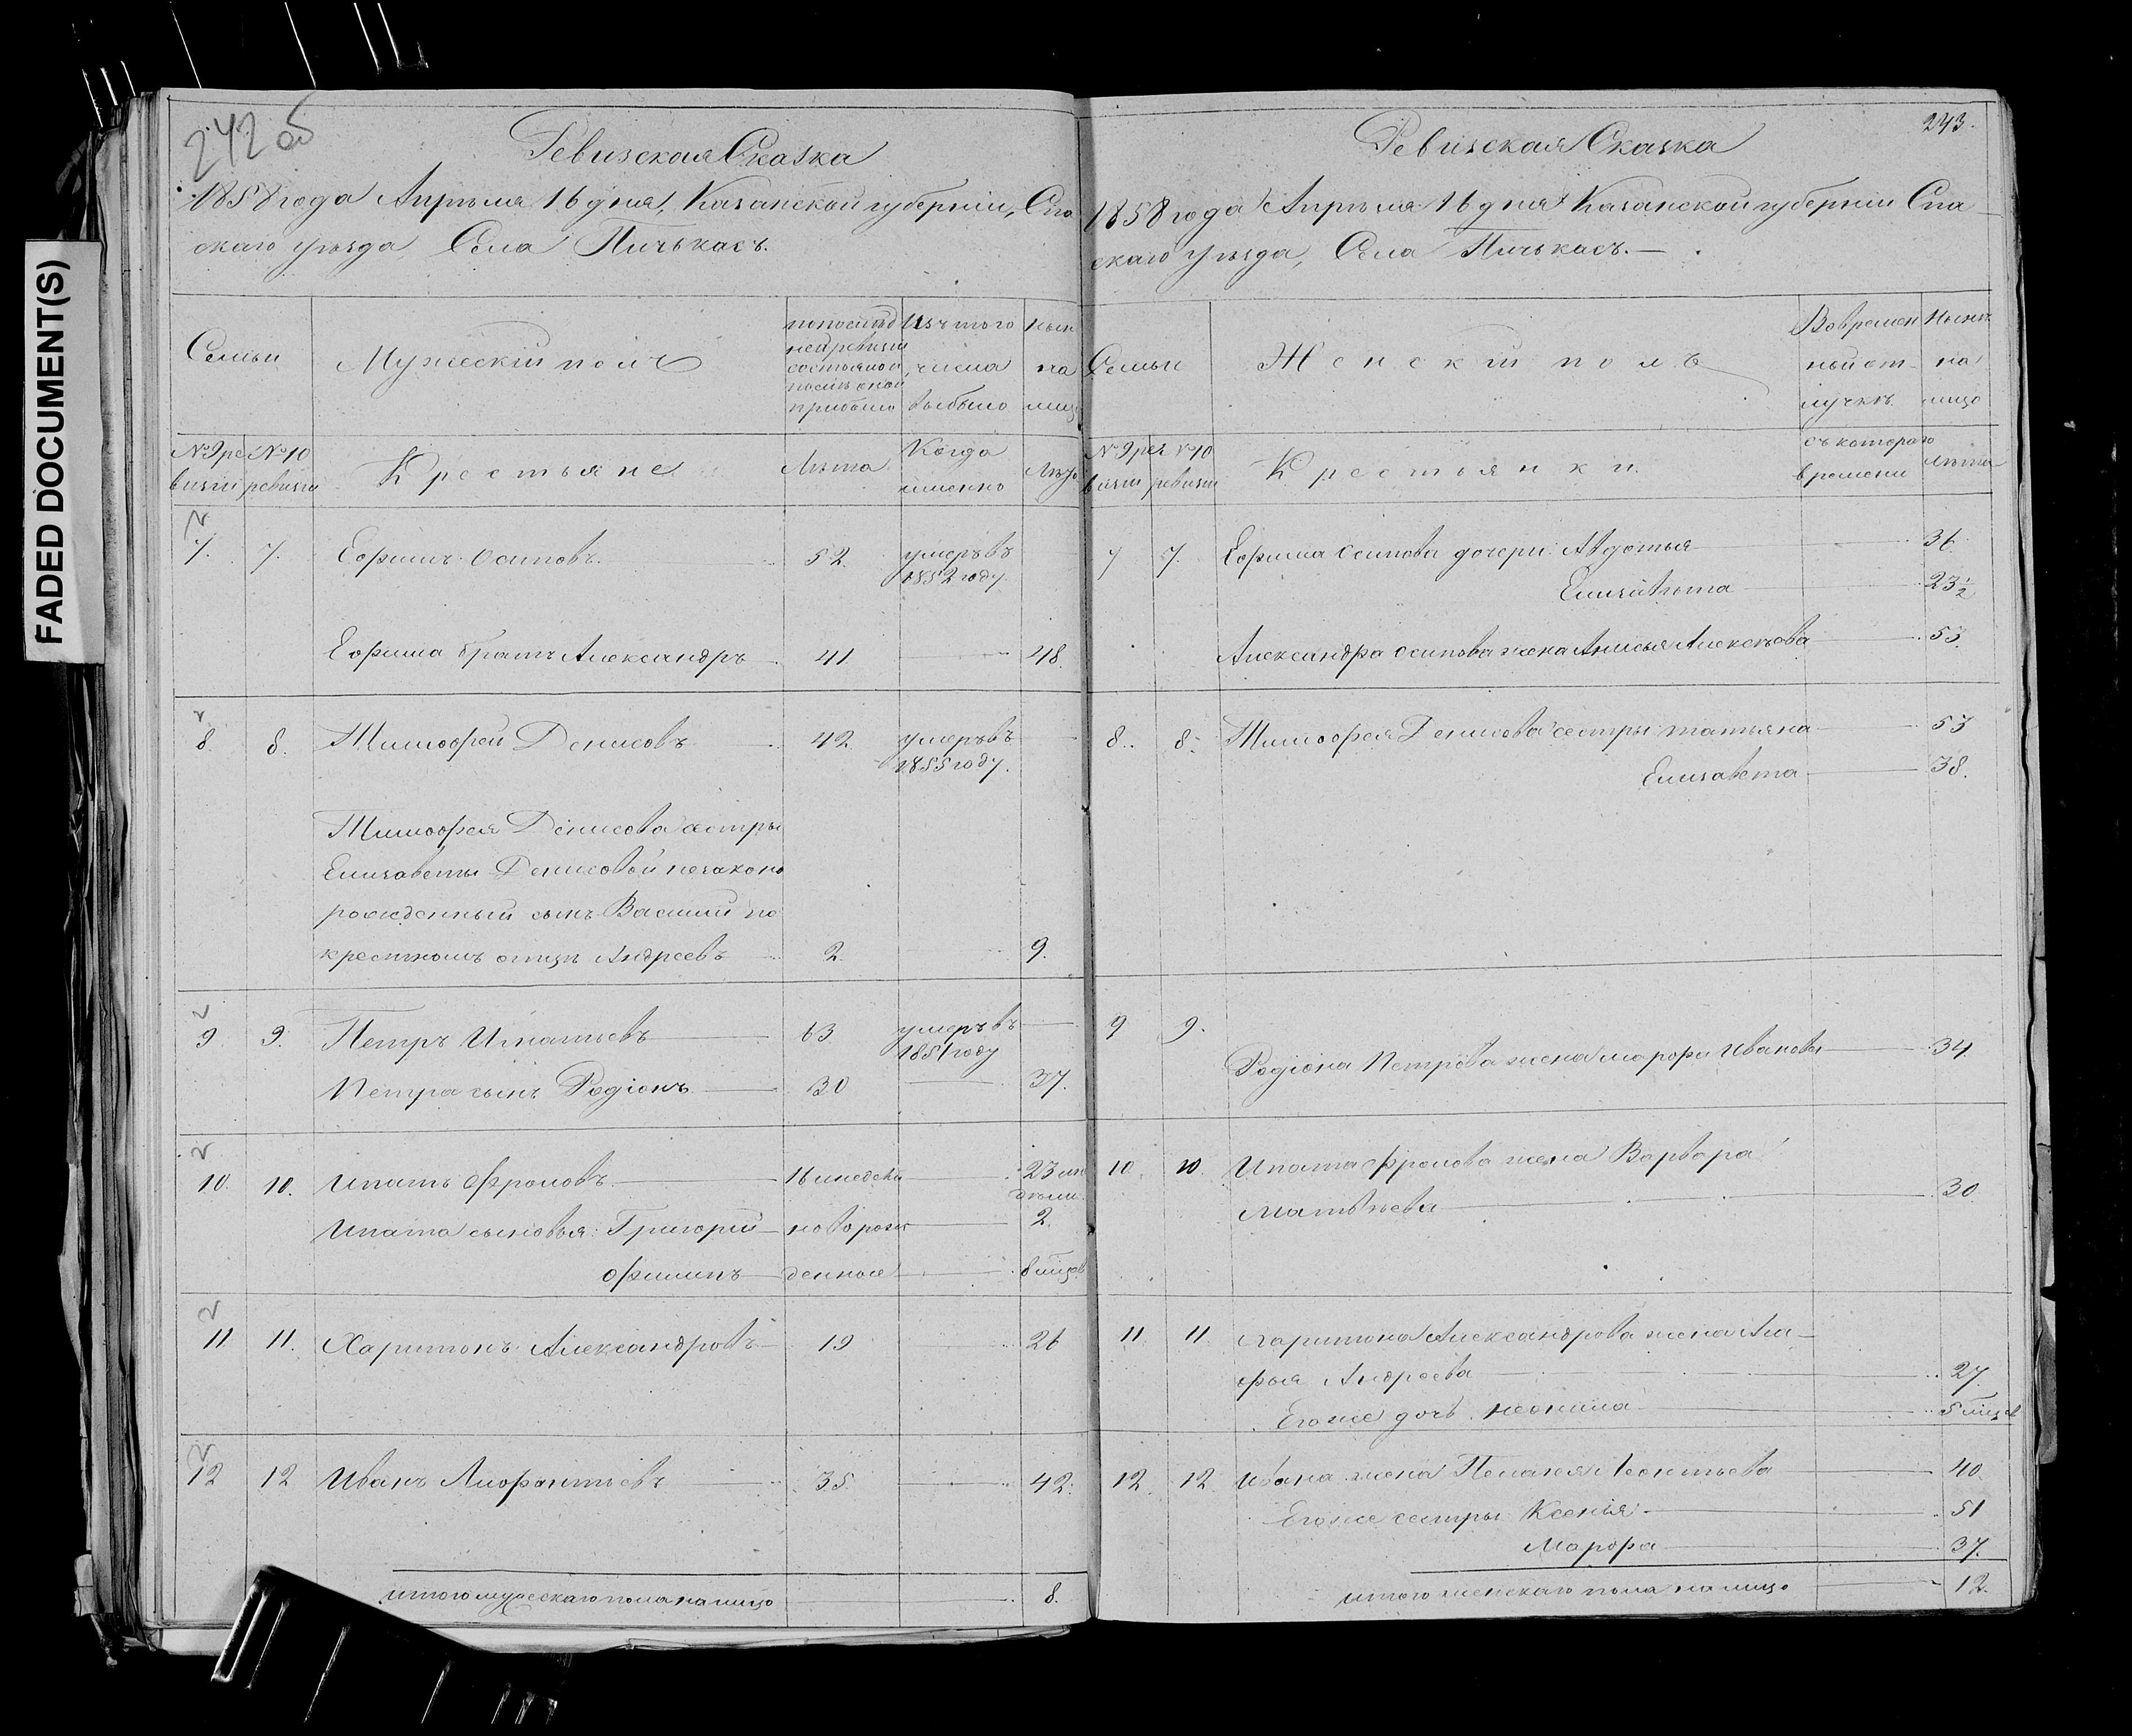 FADED DOCUMENT(S)
242 об
Ревизская Сказка
1858 года Апрѣля 16 дня, Казанской губерніи, Спа
скаго уѣзда, Села Пичькасъ.
Семьи
Мужескій полъ
по послѣд
ней ревизіи
состояло и
послѣ оной
прибыло
Изъ того
числа
выбыло
нын
на
лицо
№ 9 ре
визіи
№ 10
ревизіи
Крестьяне
Лѣта
Когда
именно
Лѣта
7. 7. Ефимъ Осиповъ 52. умеръ въ
1852 году.
Ефима братъ Александръ 41 48.
8. 8. Тимофей Денисовъ 42. умеръ въ
1855 году.
Тимофея Денисова сестры
Елизаветы Денисовой незаконо
рожденный сынъ Василий по
крестномъ отцѣ Андреевъ 2. 9.
9. 9. Петръ Игнатьевъ 63 умеръ въ
1851 году
Петра сынъ Родіонъ 30 37.
10. 10. Ипатъ Фроловъ 16 недѣль 23
Ипата сыновья: Григорій новорож 2.
Филипъ денные 8 мѣсяц
11. 11. Харитонъ Александровъ 19 26
12 12 Иванъ Лиофантьевъ 35. 42.
итого мужескаго пола на лицо 8.
243.
Ревизская Сказка
1858 года Апрѣля 16 дня Казанской губерніи Спа
скаго уѣзда, Села Пичькасъ.
Семьи
Женскій полъ
Во времен
ной от
лучкѣ
Нынѣ
на
лицо
№ 9 рев
визіи
№ 10
ревизіи
Крестьянки
съ котораго
времени
лѣта
7 7. Ефима Осипова дочери: Авдотья 36
Елизавѣта 23½
Александра Осипова жена Анисья Алексѣева 53.
8. 8. Тимофея Денисова сестры: татьяна 53
Елизавета 38.
9 9.
Родіона Петрова жена марфа Иванова 34
10. 10 Ипата Фролова жена Варвара
Матвѣева 30
11. 11. Харитона Александрова жена Ма
рья Андреева 27
Его же дочь 5 мѣсяц
12. 12. Ивана жена Пелагея Леонтьева 40
Его же сестры: Ксенія 51
Марфа 37.
итого женскаго пола на лицо 12.